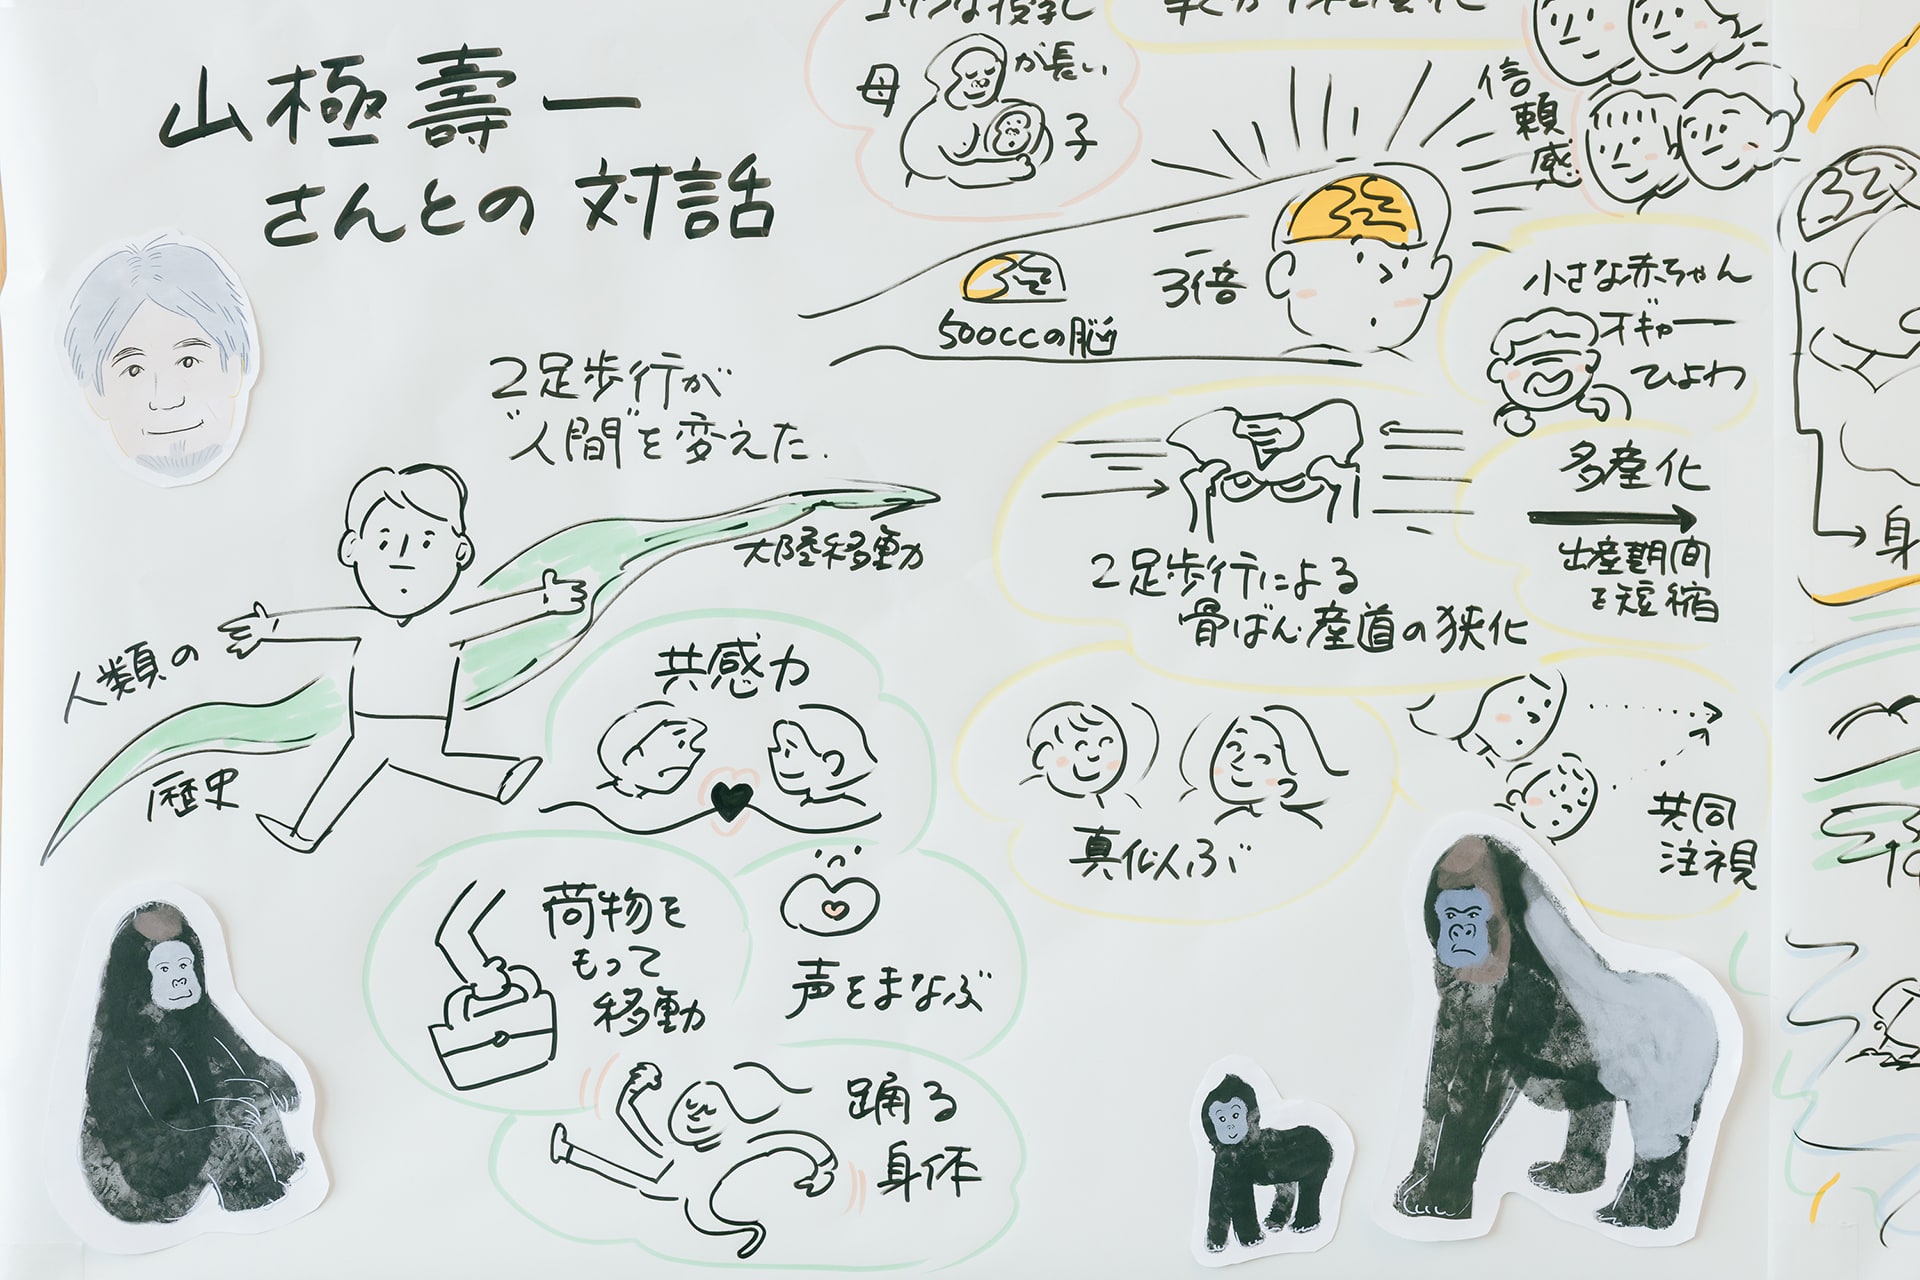 山極壽一
さんとの対話
2足歩行が
"人間"を変えた.
人類の
歴史
大陸移動
共感力
荷物を
もって
移動
声をまなぶ
踊る
身体
が長い
母
子
500ccの脳
3倍
信頼感
小さな赤ちゃん
オギャー
ひよわ
多産化
出産期間
を短縮
2足歩行による
骨ばん産道の狭化
真似んぶ
共同
注視
身